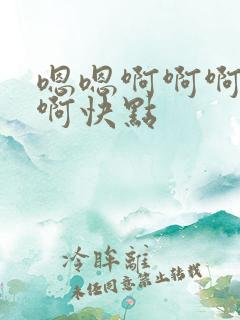 嗯嗯啊啊啊
啊快點
冷眸離
未经同意禁止转载